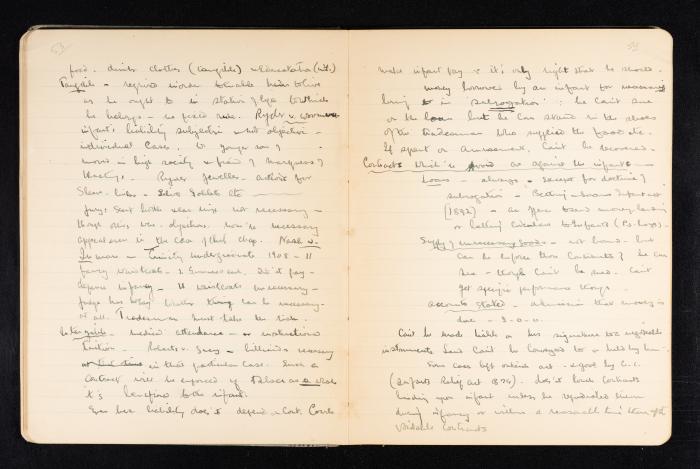 53
food. drink clothes (tangible) & Education (int.)
Tangible - requires income to enable him to live
as he ought to in station of life to which
he belongs - no fixed rule. Ryder v. Wombwell
infant's liability subjective & not objective -
individual cases. D younger son of
moved in high society & friend of Marquess of
Hastings. Ryder Jeweller - action for
Sleeve-links - Silver Goblet etc
jury sent both were not necessary -
though this was objective. now is necessary
appearance in the case of that chap. Nash v.
Inman - Trinity undergraduate 1908 - 11
fancy waistcoats - Did't pay -
defence infancy - 11 waistcoats unnecessary -
judge has to say whether thing can be necessary
at all. Tradesman must take the risk.
Intangible - medical attendance - or instruction
tuition - Roberts v. Gray - billiards necessary
in that particular case. Such a
contract will be enforced if taken as a whole
it's beneficial to the infant.
Even here liability does't depend on Cont. Courts
53
make infant pay & it's only right that he should.
money borrowed by an infant for necessary
living subrogation : he can't sue
on the loan but he can stand in the shoes
of the tradesman who supplied the food etc.
If spent on amusement, can't be recovered.
Contracts which're void as against the infant
Loans - always - Except for doctrine of
subrogation - Betting & Loans Infants Act
(1892) - an offence to send money lending
or betting circulars to Infants
Supply of unnecessary goods - not bound - but
can he enforce those contracts? he can
sue - though can't be sued. can't
get specific performance though.
accounts stated - admission that money is
due - I.O.U.
Can't be made liable on his signature to negotiable
instruments. Land can't be conveyed to or held by him.
Some cases left outside act - & good by C.L.
(Infants Relief Act 1874). does't touch contracts
binding upon infant unless he repudiated them
during infancy or within a reasonable time thereafter
voidable contracts